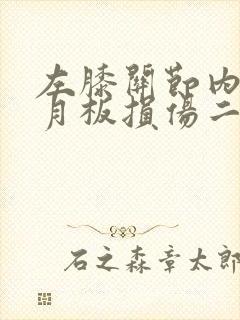 左膝關節內
月板損傷二
石之森章太郎